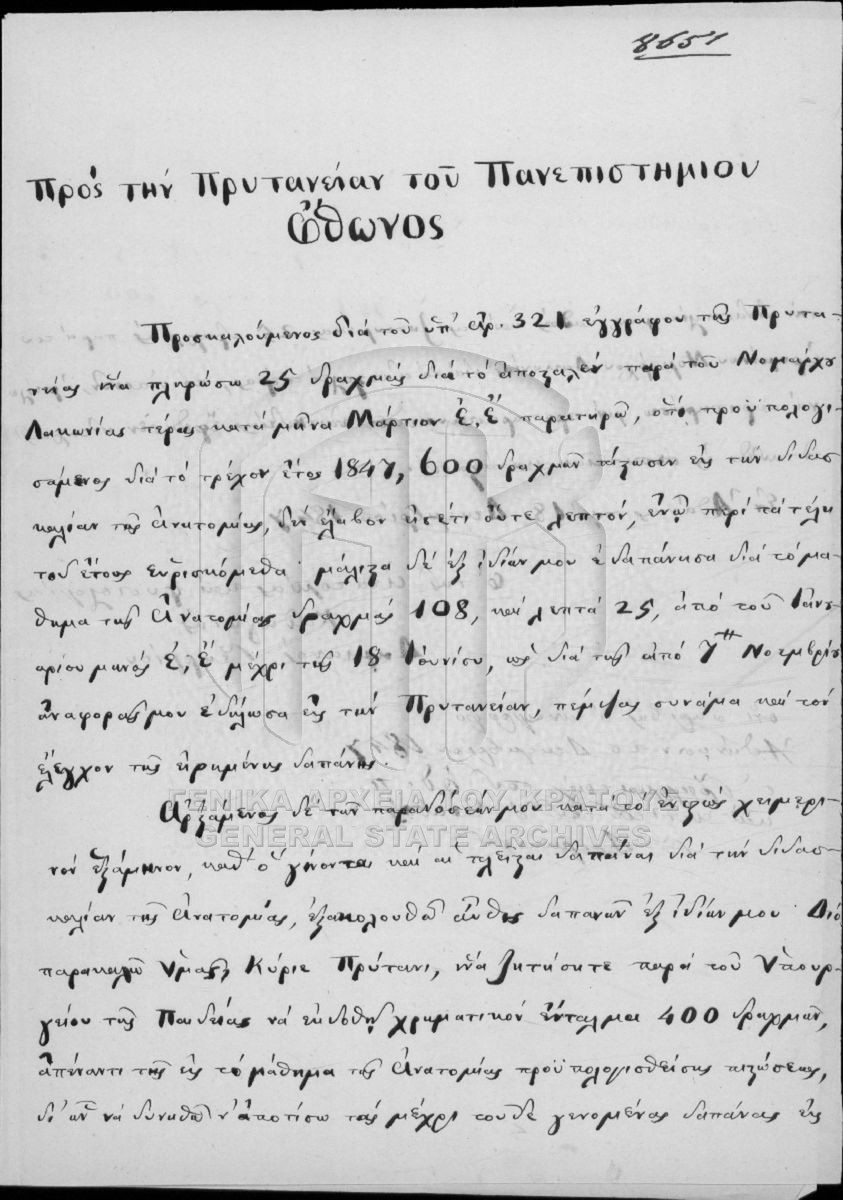 8651
Πρὸς τὴν Πρυτανείαν τοῦ Πανεπιστημίου
Ὄθωνος
Προσκαλούμενος διὰ τοῦ ὑπ' ἀρ. 321 ἐγγράφου τῆς Πρυτα-
νείας ἵνα πληρώσω 25 δραχμὰς διὰ τὸ ἀποσταλὲν παρὰ τοῦ Νομάρχου
Λακωνίας τέρας κατὰ μῆνα Μάρτιον ἐ. ἔ. παρατηρῶ, ὅτι προϋπολογι-
σάμενος διὰ τὸ τρέχον ἔτος 1847, 600 δραχμῶν πίστωσιν εἰς τὴν διδασ-
καλίαν τῆς Ἀνατομίας, δὲν ἔλαβον εἰσέτι οὔτε λεπτόν, ἐνῷ περὶ τὰ τέλη
τοῦ ἔτους εὑρισκόμεθα· μάλιστα δὲ ἐξ ἰδίων μου ἐδαπάνησα διὰ τὸ μά-
θημα τῆς Ἀνατομίας δραχμὰς 108, καὶ λεπτὰ 25, ἀπὸ τοῦ Ἰανου-
αρίου μηνὸς ἐ. ἔ. μέχρι τῆς 18 Ἰουνίου, ὡς διὰ τῆς ἀπὸ 7ης Νοεμβρίου
ἀναφορᾶς μου ἐδήλωσα εἰς τὴν Πρυτανείαν, πέμψας συνάμα καὶ τὸν
ἔλεγχον τῆς εἰρημένης δαπάνης.
ΓΕΝΙΚΑ ΑΡΧΕΙΑ ΤΟΥ ΚΡΑΤΟΥΣ
GENERAL STATE ARCHIVES
Ἀρξάμενος δὲ τῶν παραδόσεών μου κατὰ τὸ ἐνεστὼς χειμερι-
νὸν ἑξάμηνον, καθ' ὃ γίνονται καὶ αἱ πλεῖσται δαπάναι διὰ τὴν διδασ-
καλίαν τῆς Ἀνατομίας, ἐξακολουθῶ αὖθις δαπανῶν ἐξ ἰδίων μου. Διὸ
παρακαλῶ Ὑμᾶς, Κύριε Πρύτανι, ἵνα ζητήσητε παρὰ τοῦ Ὑπουρ-
γείου τῆς Παιδείας νὰ ἐκδοθῇ χρηματικὸν ἔνταλμα 400 δραχμῶν,
ἀπέναντι τῆς εἰς τὸ μάθημα τῆς Ἀνατομίας προϋπολογισθείσης πιστώσεως,
δι' ὧν νὰ δυνηθῶ ν' ἀποτίσω τὰς μέχρι τοῦδε γενομένας δαπάνας εἰς